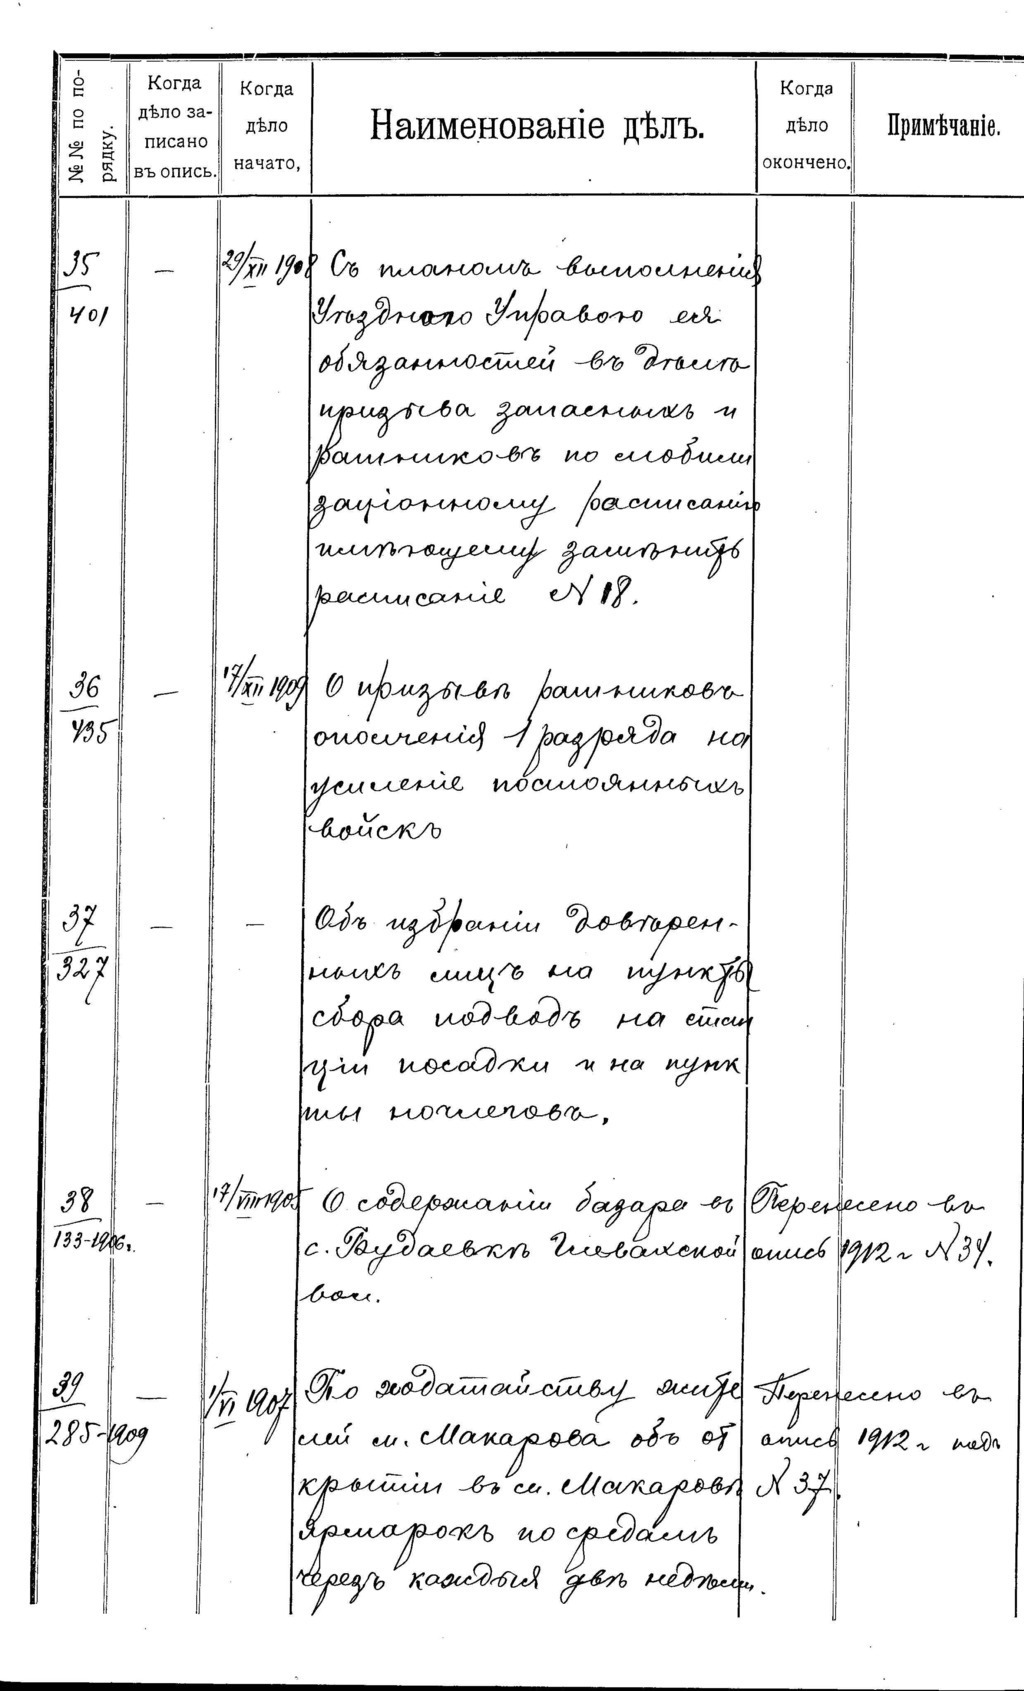 №№ по по-
рядку.
Когда
дѣло за-
писано
въ опись.
Когда
дѣло
начато,
Наименованіе дѣлъ.
Когда
дѣло
окончено.
Примѣчаніе.
35 — 29/XII 1908 Съ планомъ выполненія
401 Уѣздною Управою ея
обязанностей въ дѣлѣ
призыва запасныхъ и
ратниковъ по мобили
заціонному росписанію
имѣющему замѣнить
росписаніе N 18.
36 — 17/XII 1909 О призывѣ ратниковъ
435 ополченія 1 разряда на
усиленіе постоянныхъ
войскъ
37 — — Объ избраніи довѣрен-
327 ныхъ лицъ на пункты
сбора подводъ на стан
ціи посадки и на пунк
ты ночлеговъ.
38 — 17/VIII 1905 О содержаніи базара въ Перенесено въ
133-1906г. с. Будаевкѣ Глевахской опись 1912 г N 34.
вол.
39 — 1/VI 1907 По ходатайству жите Перенесено въ
285-1909 лей м. Макарова объ от опись 1912 г подъ
крытіи въ м. Макаровѣ N 37.
ярмарокъ по средамъ
черезъ каждыя двѣ недѣли.